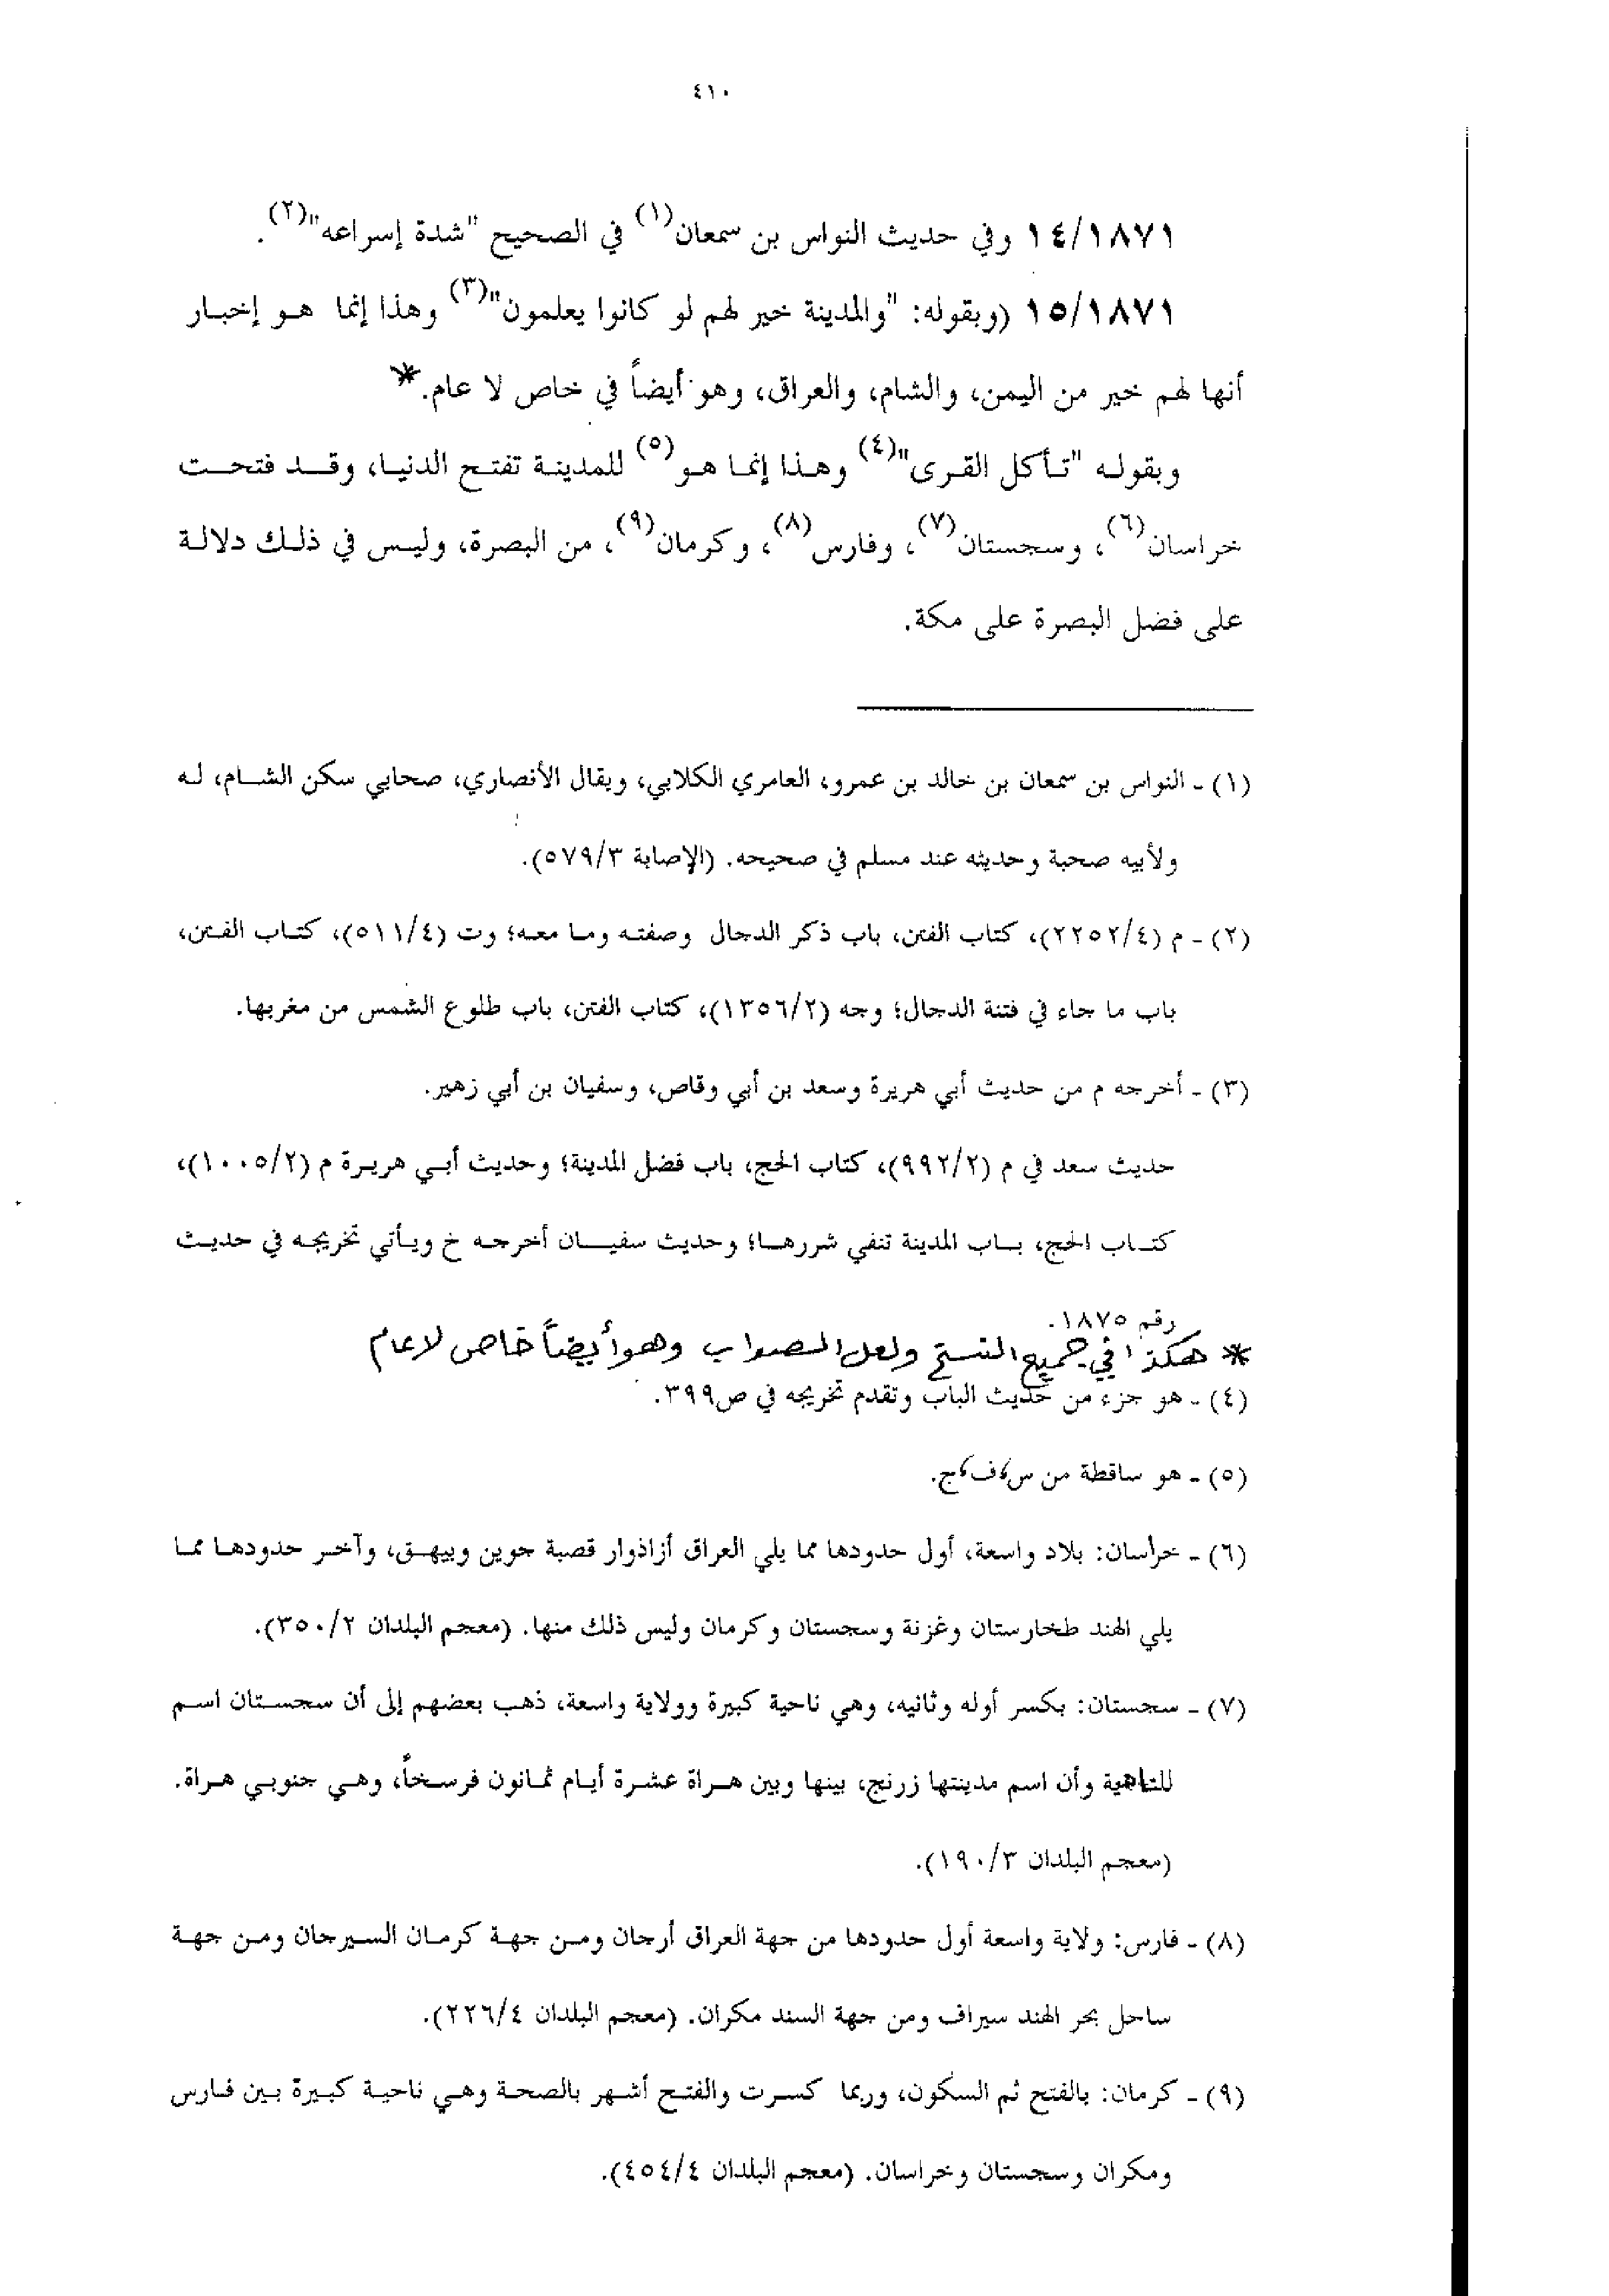 ٤١٠
١٤/١٨٧١ وفي حديث النواس بن سمعان(١) في الصحيح "شدة إسراعه"(٢).
١٥/١٨٧١ (وبقوله: "والمدينة خير لهم لو كانوا يعلمون"(٣) وهذا إنما هو إخبار
أنها لهم خير من اليمن، والشام، والعراق، وهو أيضاً في خاص لا عام.*
وبقوله "تأكل القرى"(٤) وهذا إنما هو(٥) للمدينة تفتح الدنيا، وقد فتحت
خراسان(٦)، وسجستان(٧)، وفارس(٨)، وكرمان(٩)، من البصرة، وليس في ذلك دلالة
على فضل البصرة على مكة.
(١) - النواس بن سمعان بن خالد بن عمرو، العامري الكلابي، ويقال الأنصاري، صحابي سكن الشام، له
ولأبيه صحبة وحديثه عند مسلم في صحيحه. (الإصابة ٥٧٩/٣).
(٢) - م (٢٢٥٢/٤)، كتاب الفتن، باب ذكر الدجال وصفته وما معه؛ وت (٥١١/٤)، كتاب الفتن،
باب ما جاء في فتنة الدجال؛ وجه (١٣٥٦/٢)، كتاب الفتن، باب طلوع الشمس من مغربها.
(٣) - أخرجه م من حديث أبي هريرة وسعد بن أبي وقاص، وسفيان بن أبي زهير.
حديث سعد في م (٩٩٢/٢)، كتاب الحج، باب فضل المدينة؛ وحديث أبي هريرة م (١٠٠٥/٢)،
كتاب الحج، باب المدينة تنفي شررها؛ وحديث سفيان أخرجه خ ويأتي تخريجه في حديث
رقم ١٨٧٥.
* هكذا في جميع النسخ ولعل الصواب وهو أيضاً خاص لا عام
(٤) - هو جزء من حديث الباب وتقدم تخريجه في ص٣٩٩.
(٥) - هو ساقطة من س، ف، ج.
(٦) - خراسان: بلاد واسعة، أول حدودها مما يلي العراق أزاذوار قصبة جوين وبيهق، وآخر حدودها مما
يلي الهند طخارستان وغزنة وسجستان وكرمان وليس ذلك منها. (معجم البلدان ٣٥٠/٢).
(٧) - سجستان: بكسر أوله وثانيه، وهي ناحية كبيرة وولاية واسعة، ذهب بعضهم إلى أن سجستان اسم
للناحية وأن اسم مدينتها زرنج، بينها وبين هراة عشرة أيام ثمانون فرسخاً، وهي جنوبي هراة.
(معجم البلدان ١٩٠/٣).
(٨) - فارس: ولاية واسعة أول حدودها من جهة العراق أرجان ومن جهة كرمان السيرجان ومن جهة
ساحل بحر الهند سيراف ومن جهة السند مكران. (معجم البلدان ٢٢٦/٤).
(٩) - كرمان: بالفتح ثم السكون، وربما كسرت والفتح أشهر بالصحة وهي ناحية كبيرة بين فارس
ومكران وسجستان وخراسان. (معجم البلدان ٤٥٤/٤).